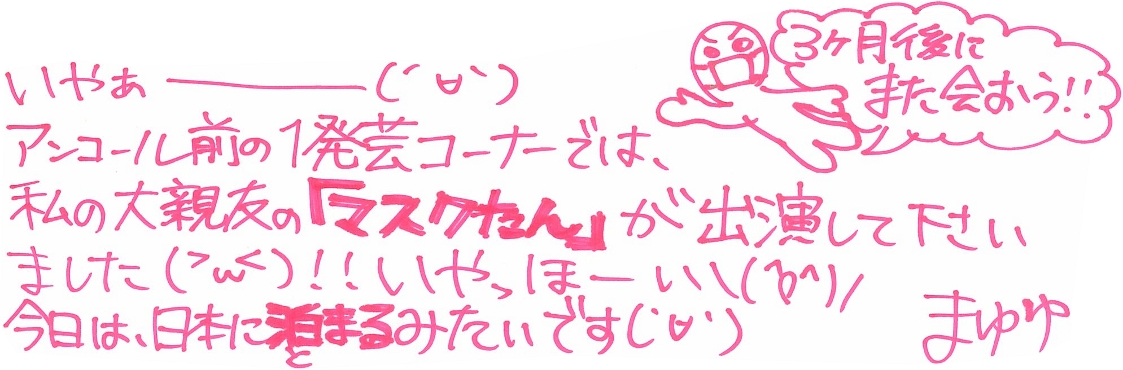 3ヶ月後に
また会おう!!
いやぁ――――(´∀`)
アンコール前の1発芸コーナーでは、
私の大親友の『マスクたん』が出演して下さい
ました(>ω<)!!いやっほーい\(^o^)/
今日は、日本に泊まるみたいです(´∀`)
と
まゆゆ